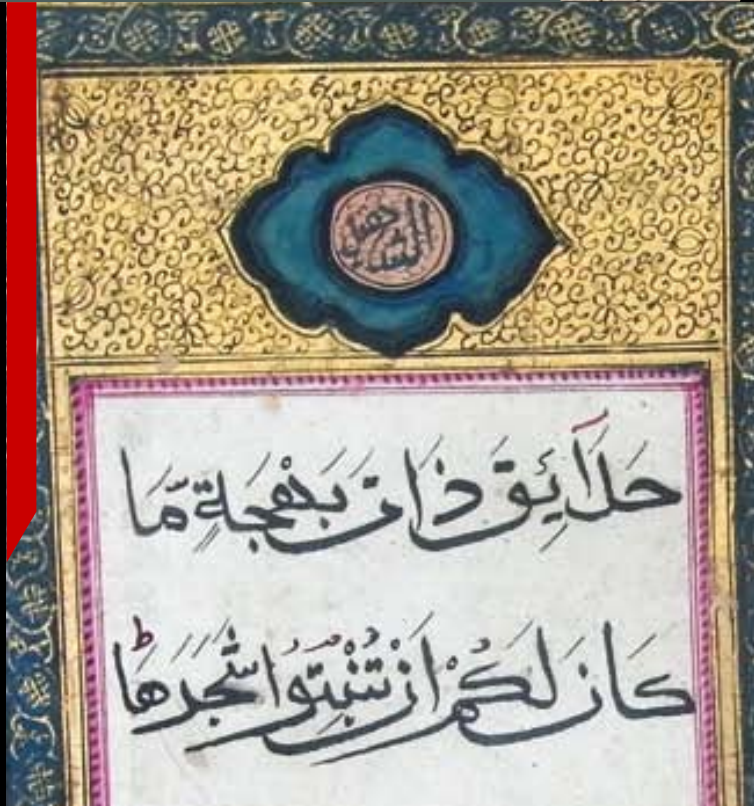 حَدَآئِقَ ذَاتَ بَهْجَةٍ مَّا
كَانَ لَكُمْ اَنْ تُنْۢبِتُوْا شَجَرَهَا ؕ